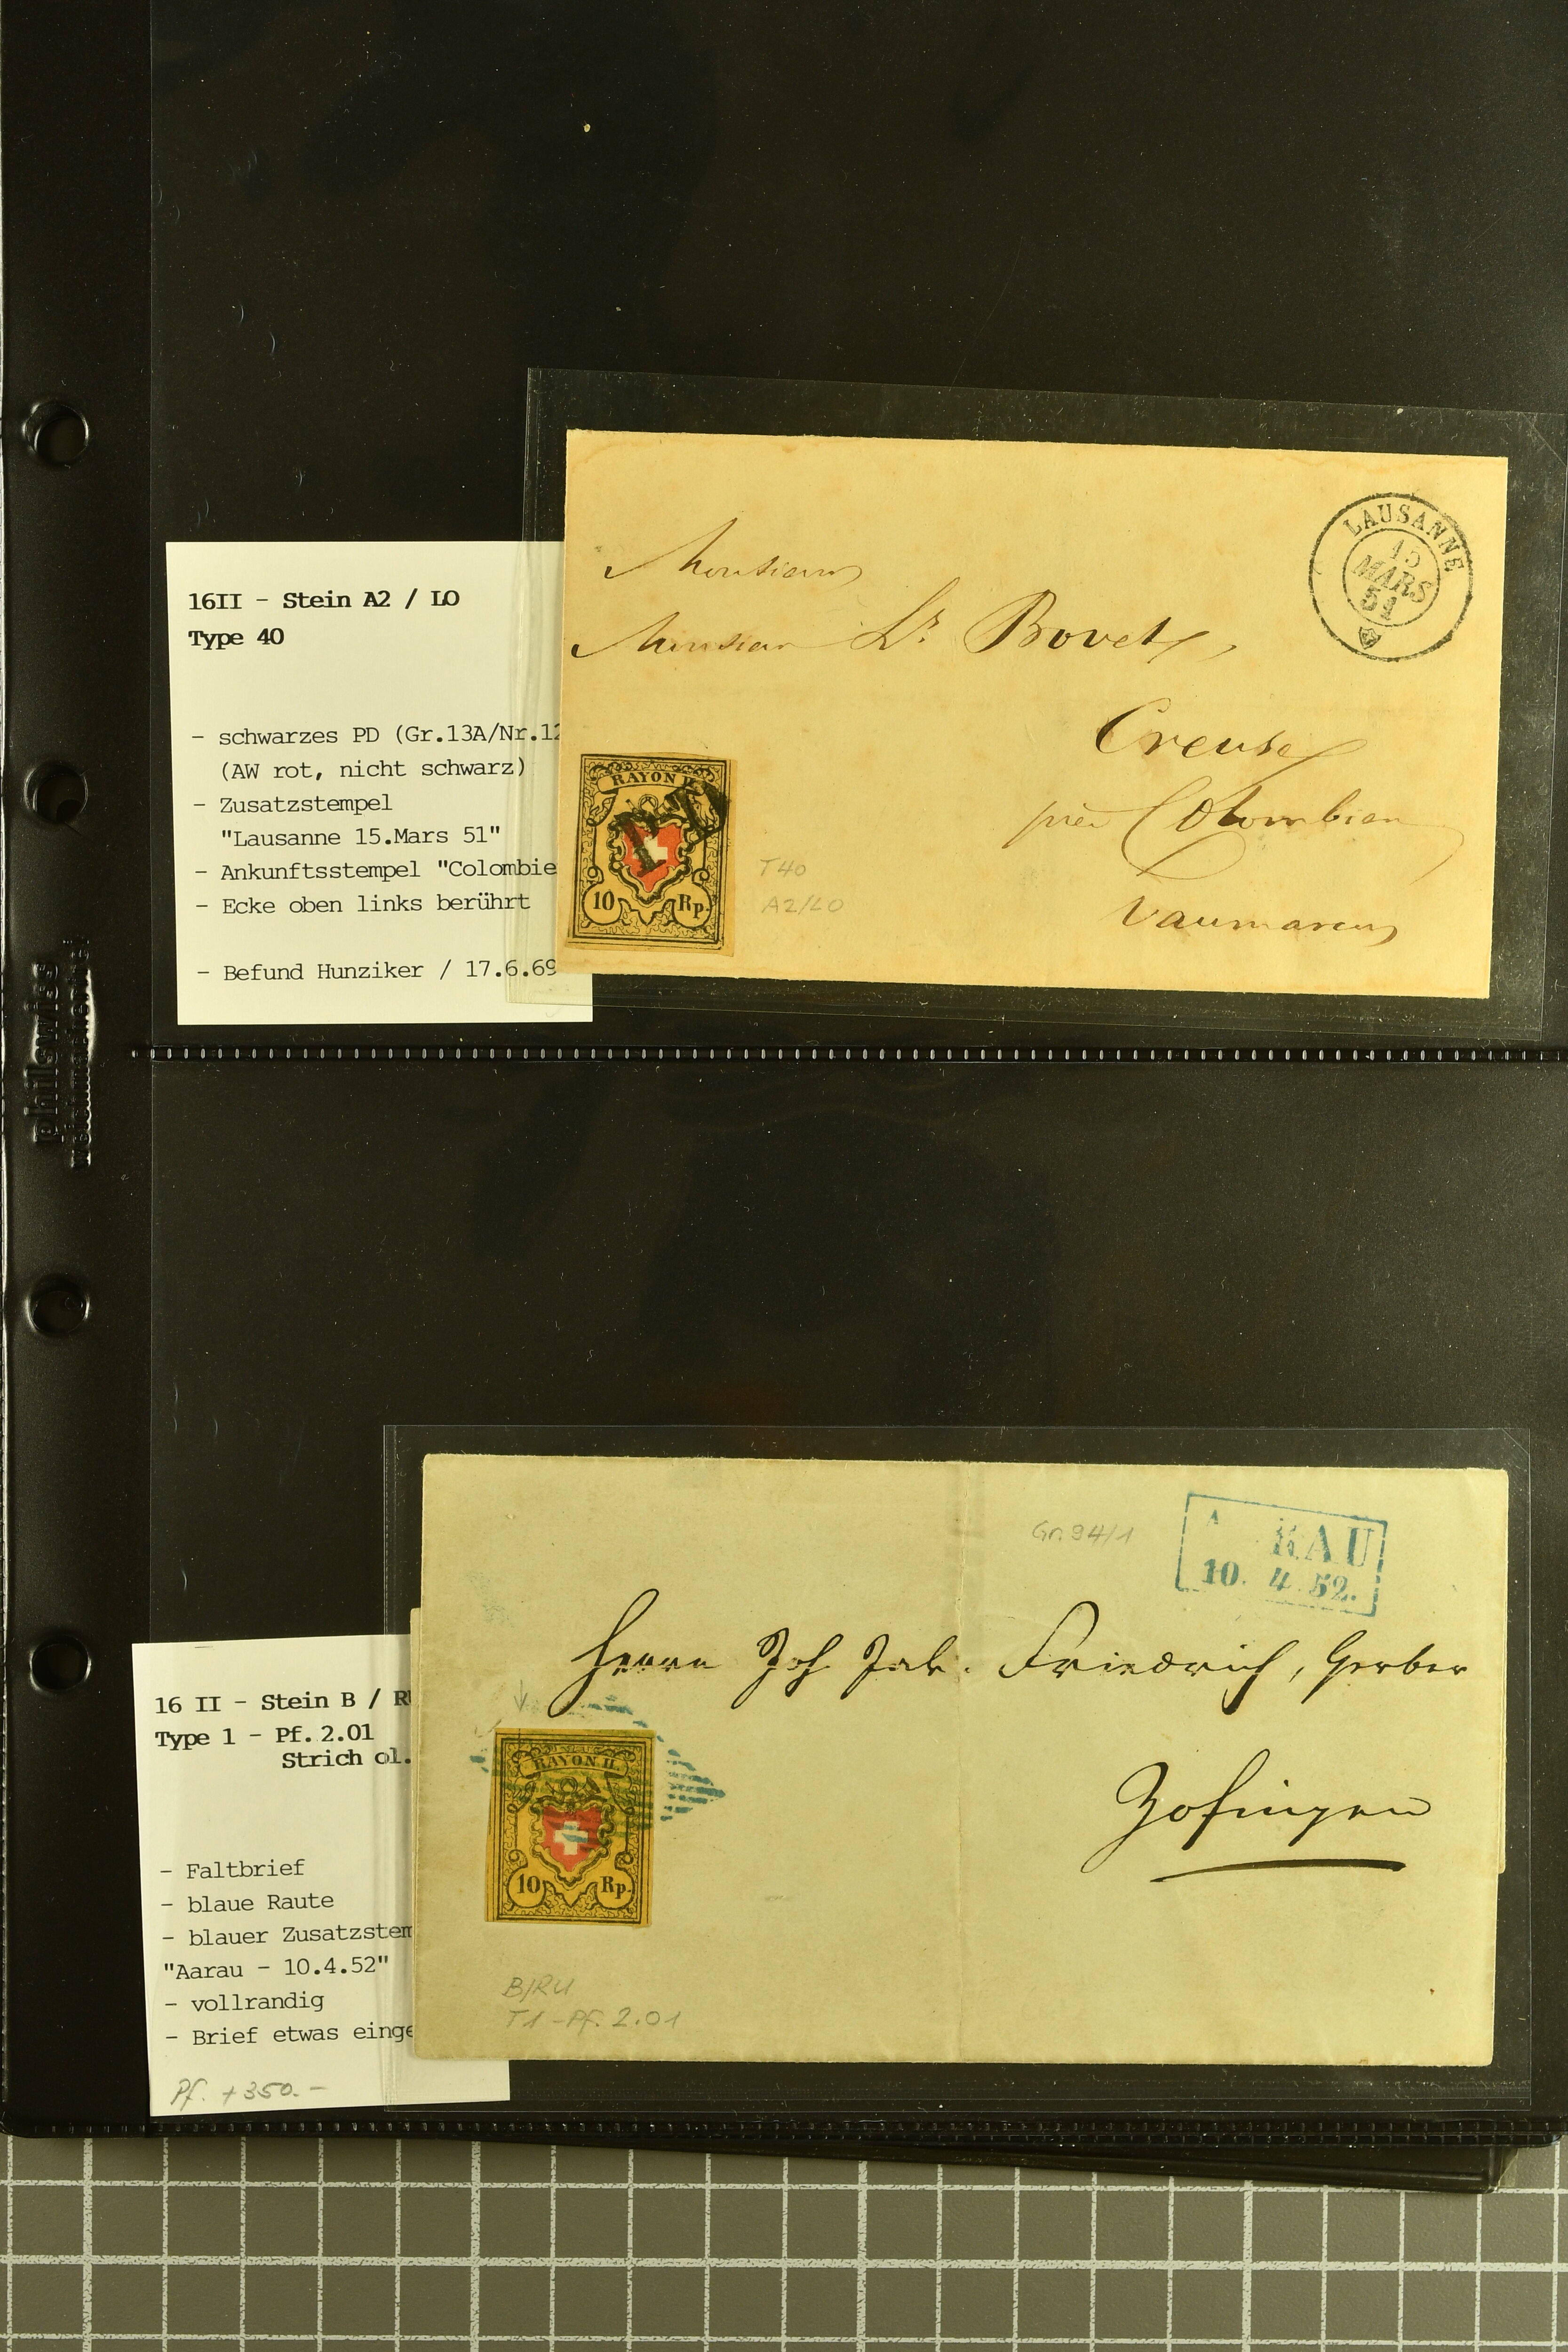 16II - Stein A2 / LO
Type 40
- schwarzes PD (Gr.13A/Nr.12
(AW rot, nicht schwarz)
- Zusatzstempel
"Lausanne 15.Mars 51"
- Ankunftsstempel "Colombie
- Ecke oben links berührt
- Befund Hunziker / 17.6.69
LAUSANNE
15
MARS
51
Monsieur
Monsieur Ls Bovet
Creuse
près Colombier
Vaumarcus
RAYON II.
PD
10 Rp.
T40
A2/LO
philswiss
16 II - Stein B / RU
Type 1 - Pf. 2.01
Strich ol.
- Faltbrief
- blaue Raute
- blauer Zusatzstem
"Aarau - 10.4.52"
- vollrandig
- Brief etwas einge
Pf. + 350.-
Gr. 94/1
A RAU
10. 4 52.
Herrn Joh Jak. Friedrich, Gerber
Zofingen
RAYON II.
10 Rp.
B/RU
T1 - Pf. 2.01